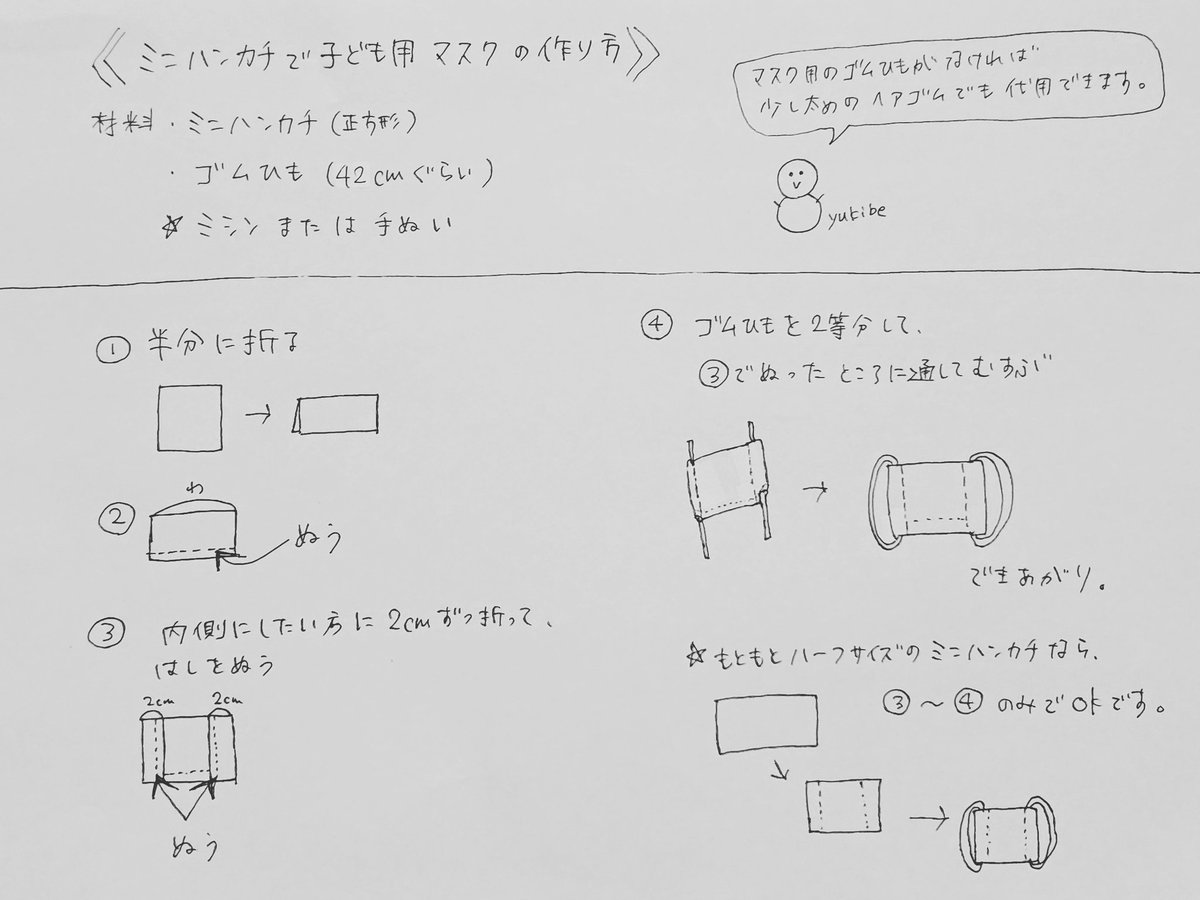 《ミニハンカチで子ども用マスクの作り方》
材料・ミニハンカチ(正方形)
・ゴムひも(42cmぐらい)
☆ミシンまたは手ぬい
マスク用のゴムひもがなければ
少し太めのヘアゴムでも代用できます。
yukibe
① 半分に折る
②
わ
ぬう
③ 内側にしたい方に2cmずつ折って、
はしをぬう
2cm 2cm
ぬう
④ ゴムひもを2等分して、
③でぬったところに通してむすぶ
できあがり。
☆もともとハーフサイズのミニハンカチなら、
③～④のみでOKです。